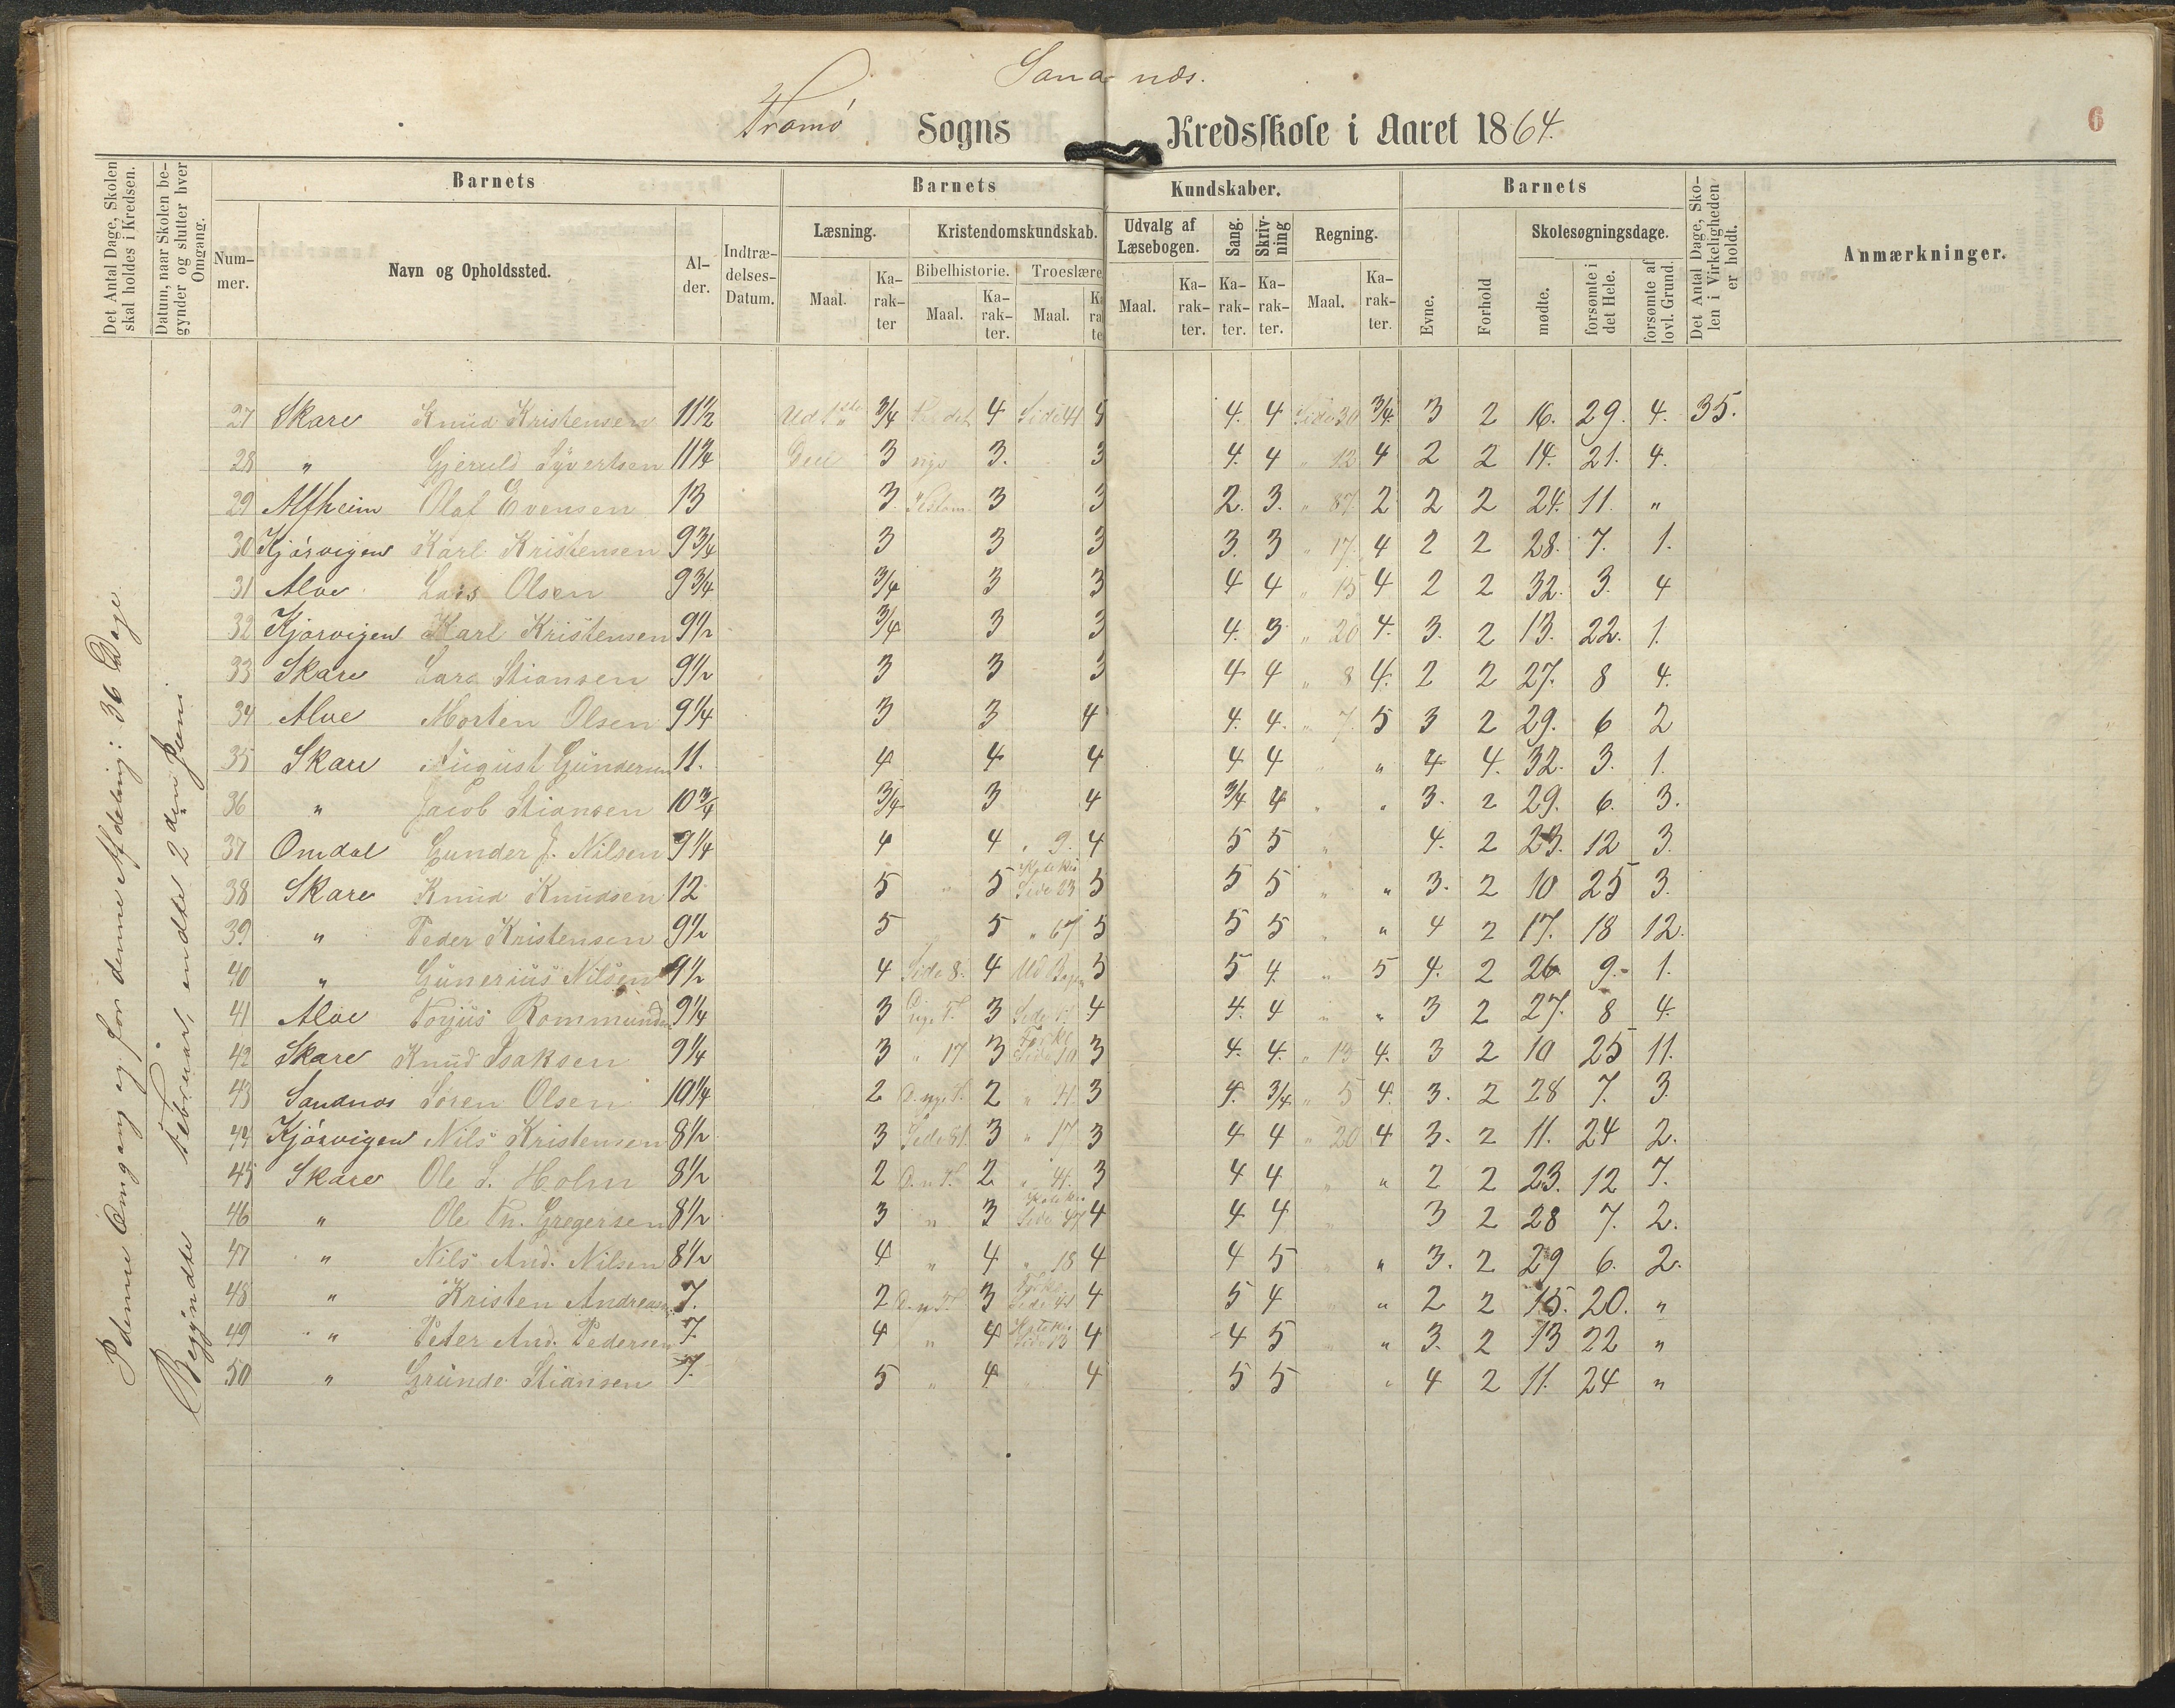 Sandnæs.
Tromø Sogns Kredsskole i Aaret 1864.
6
Det Antal Dage, Skolen skal holdes i Kredsen.
Datum, naar Skolen begynder og slutter hver Omgang.
Barnets Barnets Kundskaber. Barnets
Det Antal Dage, Skolen i Virkeligheden er holdt.
Anmærkninger.
Nummer. Navn og Opholdssted. Alder. Indtrædelses-Datum.
Læsning. Kristendomskundskab. Udvalg af Læsebogen. Sang. Skrivning Regning. Evne. Forhold Skolesøgningsdage.
Bibelhistorie. Troeslære
Maal. Karakter Maal. Karakter. Maal. Maal. Karakter. Karakter. Karakter. Maal. Karakter. mødte. forsømte i det Hele. forsømte af lovl. Grund.
I denne Omgang og for denne Afdeling: 36 Dage
Begyndte Februar, endte 2den Juni
27 Skare Knud Kristensen 11½ 3/4 4 Side 41 4. 4 Side 30 3/4. 3 2 16. 29. 4. 35.
28 " Gjeruld Syvertsen 11¼ 3 3. 3 4. 4 " 12 4 2 2 14. 21. 4.
29 Alfheim Olaf Evensen 13 3. 3 3 2. 3. " 87 2 2 2 24. 11. "
30 Kjørvigen Karl Kristensen 9¾ 3 3 3 3. 3 " 17. 4 2 2 28. 7. 1.
31 Alve Lars Olsen 9¾ 3/4 3 3 4 4 " 15 4. 2 2 32. 3. 4
32 Kjørvigen Karl Kristensen 9½ 3/4 3 3 4. 3 " 20 4. 3. 2 13. 22. 1.
33 Skare Lars Stiansen 9½ 3 3 3 4 4 " 8 4. 2 2 27. 8 4.
34 Alve Morten Olsen 9¼ 3 3 4 4. 4. " 7. 5 3 2 29. 6 2
35 Skare August Gundersen 11. 4 4 4 4 4 " 4 4. 32. 3. 1.
36 " Jacob Stiansen 10¾ 3/4 3 4 3/4 4 " " 3. 2 29. 6. 3.
37 Omdal Gunder J. Nilsen 9¼ 4 4 " 9. 4 5 5 " 4. 2 23. 12 3.
38 Skare Knud Knudsen 12 5 " 5 Side 23 5 5 5 " " 3. 2 10 25 3.
39 " Peder Kristensen 9½ 5 5 " 67 5 5 5 " " 4 2 17. 18 12.
40 " Gunerius Nilsen 9½ 4 Side 8. 4 5 5 4. " 5 4. 2 26 9. 1.
41 Alve Torjus Rommunds 9¼ 3 3 4 4. 4 " " 3 2 27. 8 4.
42 Skare Knud Isaksen 9¼ 3 " 17 3 Side 10 3 4. 4. " 13 4. 3 2 10 25 11.
43 Sandnæs Søren Olsen 10¼ 2 2 " 41. 3 4. 3/4 " 5 4. 3. 2 28 7. 3.
44 Kjørvigen Nils Kristensen 8½ 3 Side 81. 3 " 17 3 4 4 " 20 4 3. 2 11. 24 2.
45 Skare Ole S. Holm 8½ 2 2. " 41. 3 4 4 " " 2 2 23. 12 7.
46 " Ole Th. Gregersen 8½ 3 " 3 Side 47 4 4 4 " 3 2 28 7. 2.
47 " Nils And. Nilsen 8½ 4 " 4 " 18 4 4 5 " " 3. 2 29 6. 2.
48 " Kristen Andreas. 7. 2 3 Side 44 4 5 4 " " 2 2 15. 20. "
49 " Peter And. Pedersen 7. 4 " 4 Side 13 4 4 5 " " 3. 2 13 22 "
50 " Grunde Stiansen 7. 5 " 4 " 4 5 5 " 4 2 11. 24 "